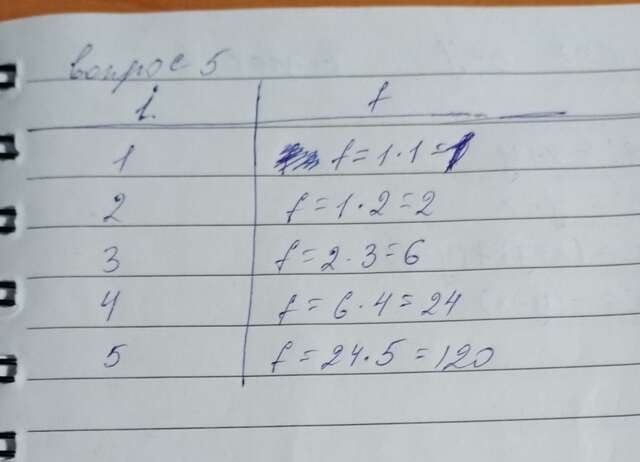 вопрос 5
i f
1 f = 1 · 1 = 1
2 f = 1 · 2 = 2
3 f = 2 · 3 = 6
4 f = 6 · 4 = 24
5 f = 24 · 5 = 120